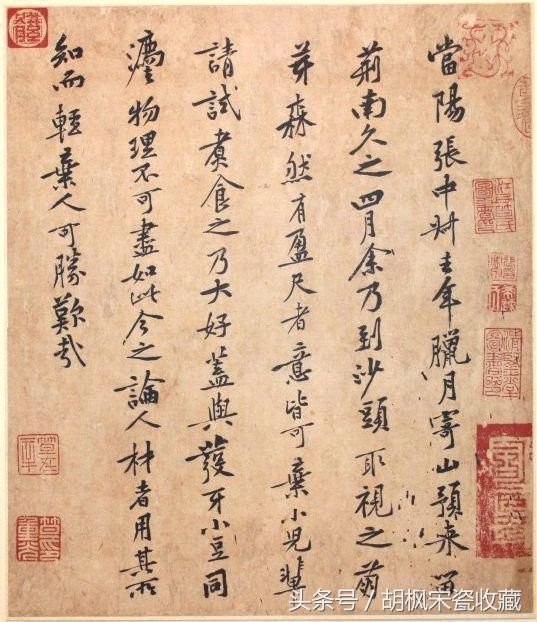 當陽張中叔去年臘月寄山預來留
荊南久之四月余乃到沙頭取視之萌
芽森然有盈尺者意皆可棄小兒輩
請試煮食之乃大好蓋與發牙小豆同
灋物理不可盡如此今之論人材者用其所
知而輕棄人可勝歎哉
头条号 / 胡枫宋瓷收藏